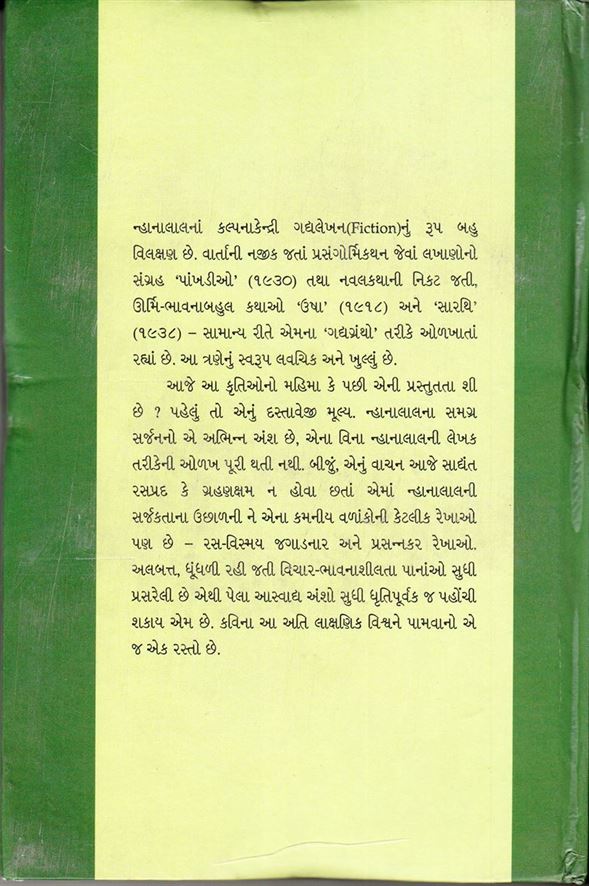 ન્હાનાલાલનાં કલ્પનાકેન્દ્રી ગદ્યલેખન(Fiction)નું રૂપ બહુ
વિલક્ષણ છે. વાર્તાની નજીક જતાં પ્રસંગોર્મિકથન જેવાં લખાણોનો
સંગ્રહ ‘પાંખડીઓ’ (૧૯૩૦) તથા નવલકથાની નિકટ જતી,
ઊર્મિ-ભાવનાબહુલ કથાઓ ‘ઉષા’ (૧૯૧૮) અને ‘સારથિ’
(૧૯૩૮) – સામાન્ય રીતે એમના ‘ગદ્યગ્રંથો’ તરીકે ઓળખાતાં
રહ્યાં છે. આ ત્રણેનું સ્વરૂપ લવચિક અને ખુલ્લું છે.
આજે આ કૃતિઓનો મહિમા કે પછી એની પ્રસ્તુતતા શી
છે ? પહેલું તો એનું દસ્તાવેજી મૂલ્ય. ન્હાનાલાલના સમગ્ર
સર્જનનો એ અભિન્ન અંશ છે, એના વિના ન્હાનાલાલની લેખક
તરીકેની ઓળખ પૂરી થતી નથી. બીજું, એનું વાચન આજે સાદ્યંત
રસપ્રદ કે ગ્રહણક્ષમ ન હોવા છતાં એમાં ન્હાનાલાલની
સર્જકતાના ઉછાળની ને એના કમનીય વળાંકોની કેટલીક રેખાઓ
પણ છે – રસ-વિસ્મય જગાડનાર અને પ્રસન્નકર રેખાઓ.
અલબત્ત, ધૂંધળી રહી જતી વિચાર-ભાવનાશીલતા પાનાંઓ સુધી
પ્રસરેલી છે એથી પેલા આસ્વાદ્ય અંશો સુધી ધૃતિપૂર્વક જ પહોંચી
શકાય એમ છે. કવિના આ અતિ લાક્ષણિક વિશ્વને પામવાનો એ
જ એક રસ્તો છે.